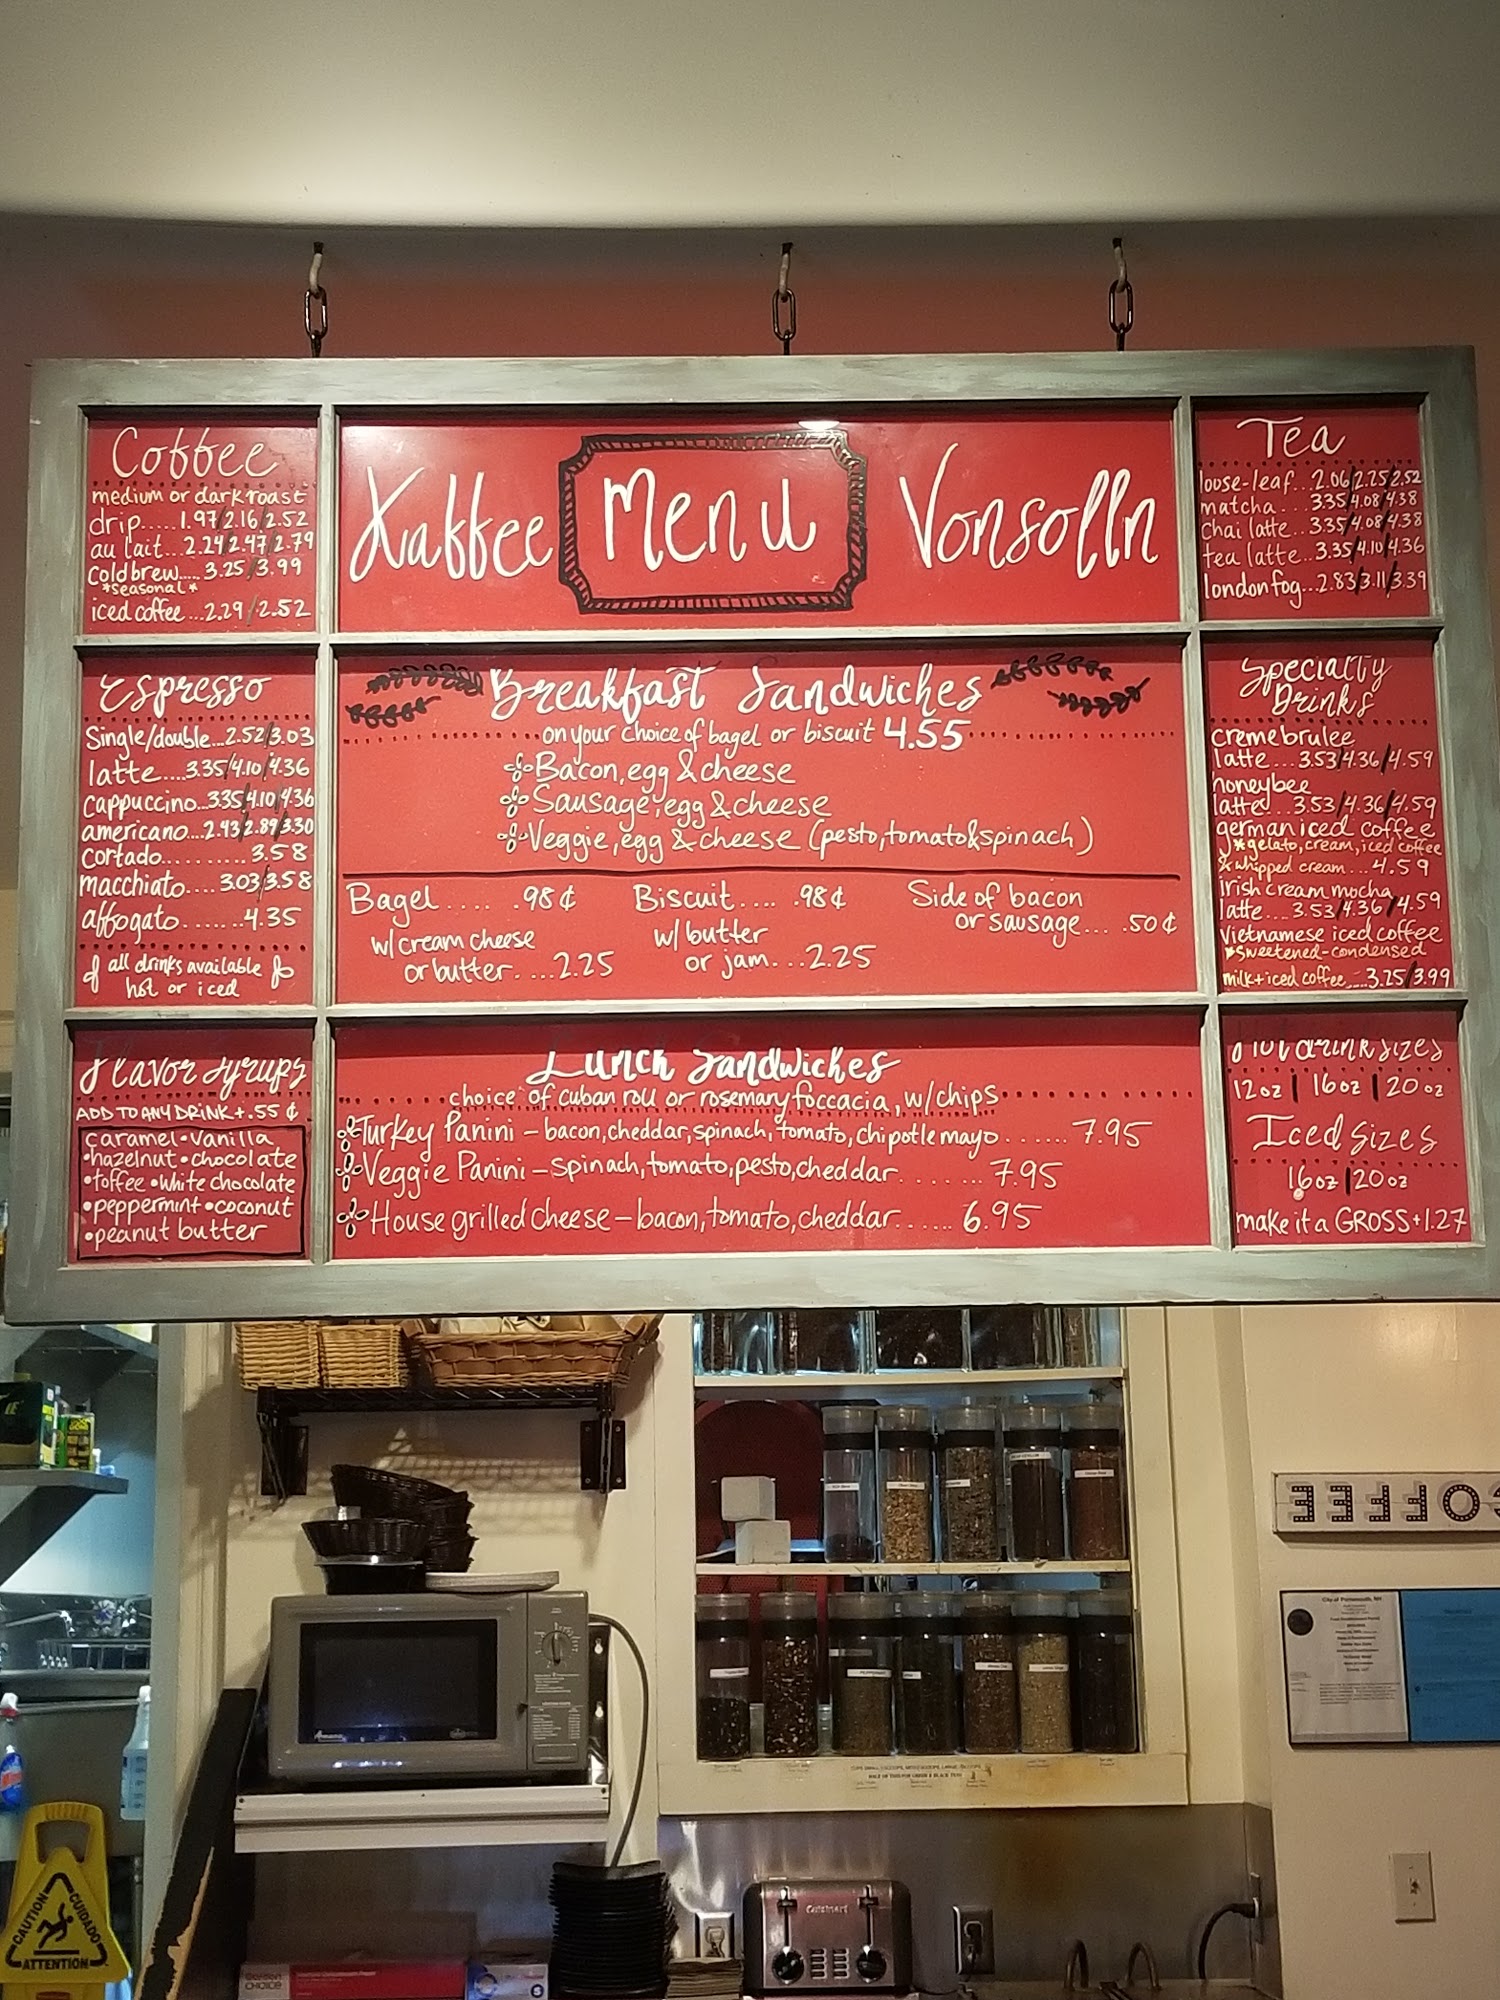 Coffee
medium or dark roast
drip.....1.97/2.16/2.52
au lait...2.24/2.47/2.79
cold brew.....3.25/3.99
*seasonal*
iced coffee...2.29/2.52
Kaffee Menu Vonsolln
Tea
loose-leaf..2.06/2.25/2.52
matcha...3.35/4.08/4.38
chai latte..3.35/4.08/4.38
tea latte..3.35/4.10/4.36
london fog...2.83/3.11/3.39
Espresso
Single/double...2.52/3.03
latte....3.35/4.10/4.36
cappuccino...3.35/4.10/4.36
americano...2.43/2.89/3.30
cortado..........3.58
macchiato....3.03/3.58
affogato......4.35
all drinks available
hot or iced
Breakfast Sandwiches
on your choice of bagel or biscuit 4.55
Bacon, egg & cheese
Sausage, egg & cheese
Veggie, egg & cheese (pesto, tomato & spinach)
Bagel..... .98¢
w/ cream cheese
or butter....2.25
Biscuit.... .98¢
w/ butter
or jam...2.25
Side of bacon
or sausage... .50¢
Specialty
Drinks
creme brulee
latte...3.53/4.36/4.59
honeybee
latte...3.53/4.36/4.59
german iced coffee
*gelato, cream, iced coffee
*whipped cream...4.59
Irish cream mocha
latte....3.53/4.36/4.59
Vietnamese iced coffee
*sweetened-condensed
milk + iced coffee.....3.25/3.99
Flavor Syrups
ADD TO ANY DRINK +.55¢
caramel • vanilla
•hazelnut • chocolate
•toffee • white chocolate
•peppermint • coconut
•peanut butter
Lunch Sandwiches
choice of cuban roll or rosemary foccacia, w/ chips
Turkey Panini - bacon, cheddar, spinach, tomato, chipotle mayo.......7.95
Veggie Panini - spinach, tomato, pesto, cheddar........7.95
House grilled cheese - bacon, tomato, cheddar......6.95
Hot drink sizes
12oz | 16oz | 20oz
Iced Sizes
16oz | 20oz
make it a GROSS +1.27
COFFEE
City of Portsmouth, NH
Cuisinart
CAUTION
CUIDADO
ATTENTION